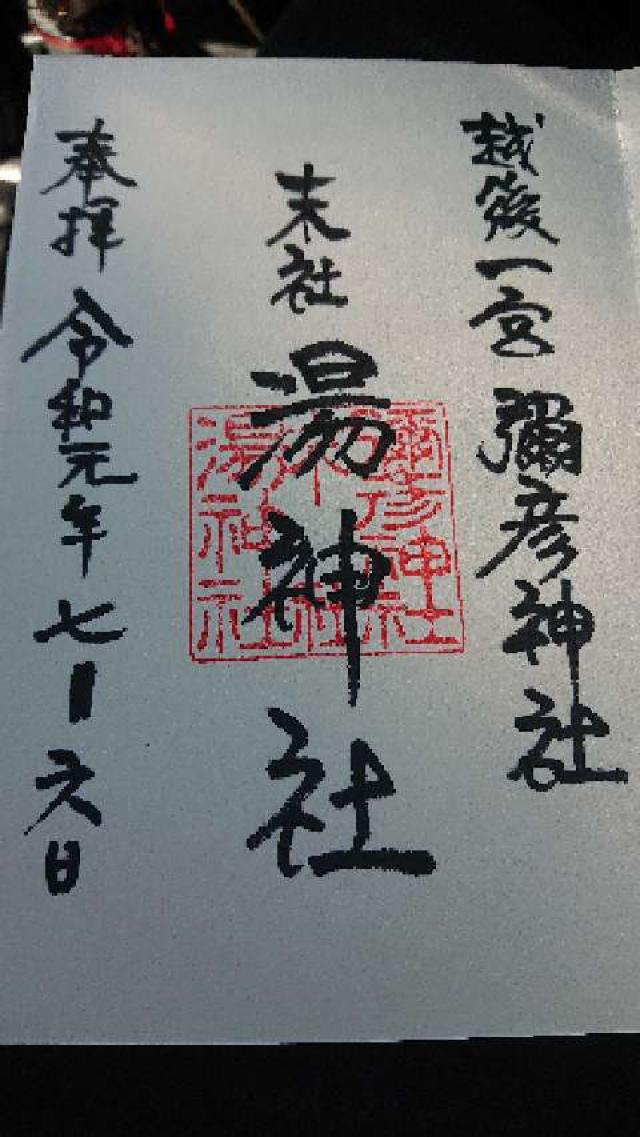 越後一宮 彌彦神社
末社 湯神社
彌彦神社
末社
湯神社
奉拝 令和元年七月六日